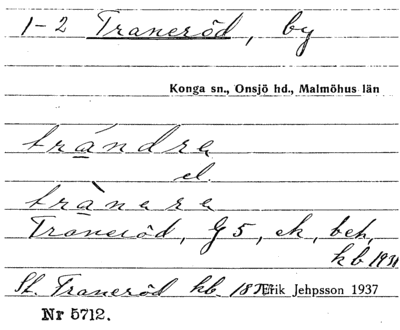 1-2 Traneröd, by
Konga sn., Onsjö hd., Malmöhus län
trándra
el.
trànara
Traneröd, G 5, ek, beh,
kb 1931
St. Traneröd hb.
Erik Jehpsson 1937
Nr 5712.